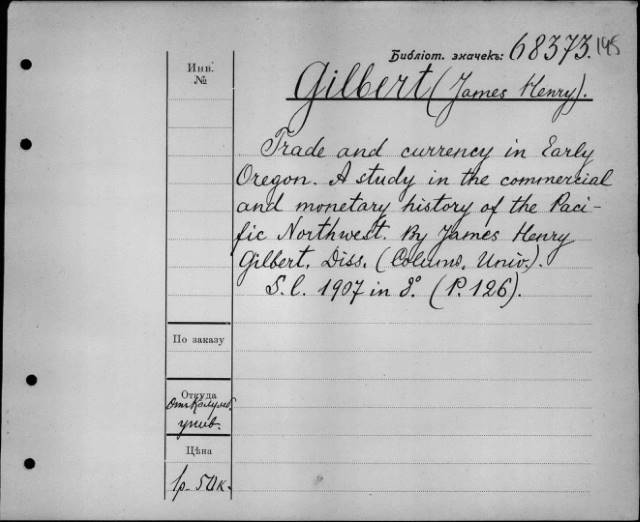 Библіот. значекъ: 68373. 195
Инв.
№
Gilbert (James Henry).
Trade and currency in Early
Oregon. A study in the commercial
and monetary history of the Paci-
fic Northwest. By James Henry
Gilbert. Diss. (Columb. Univ.).
S. l. 1907 in 8° (P. 126).
По заказу
Откуда
От Колумб.
унив.
Цѣна
1р. 50к.